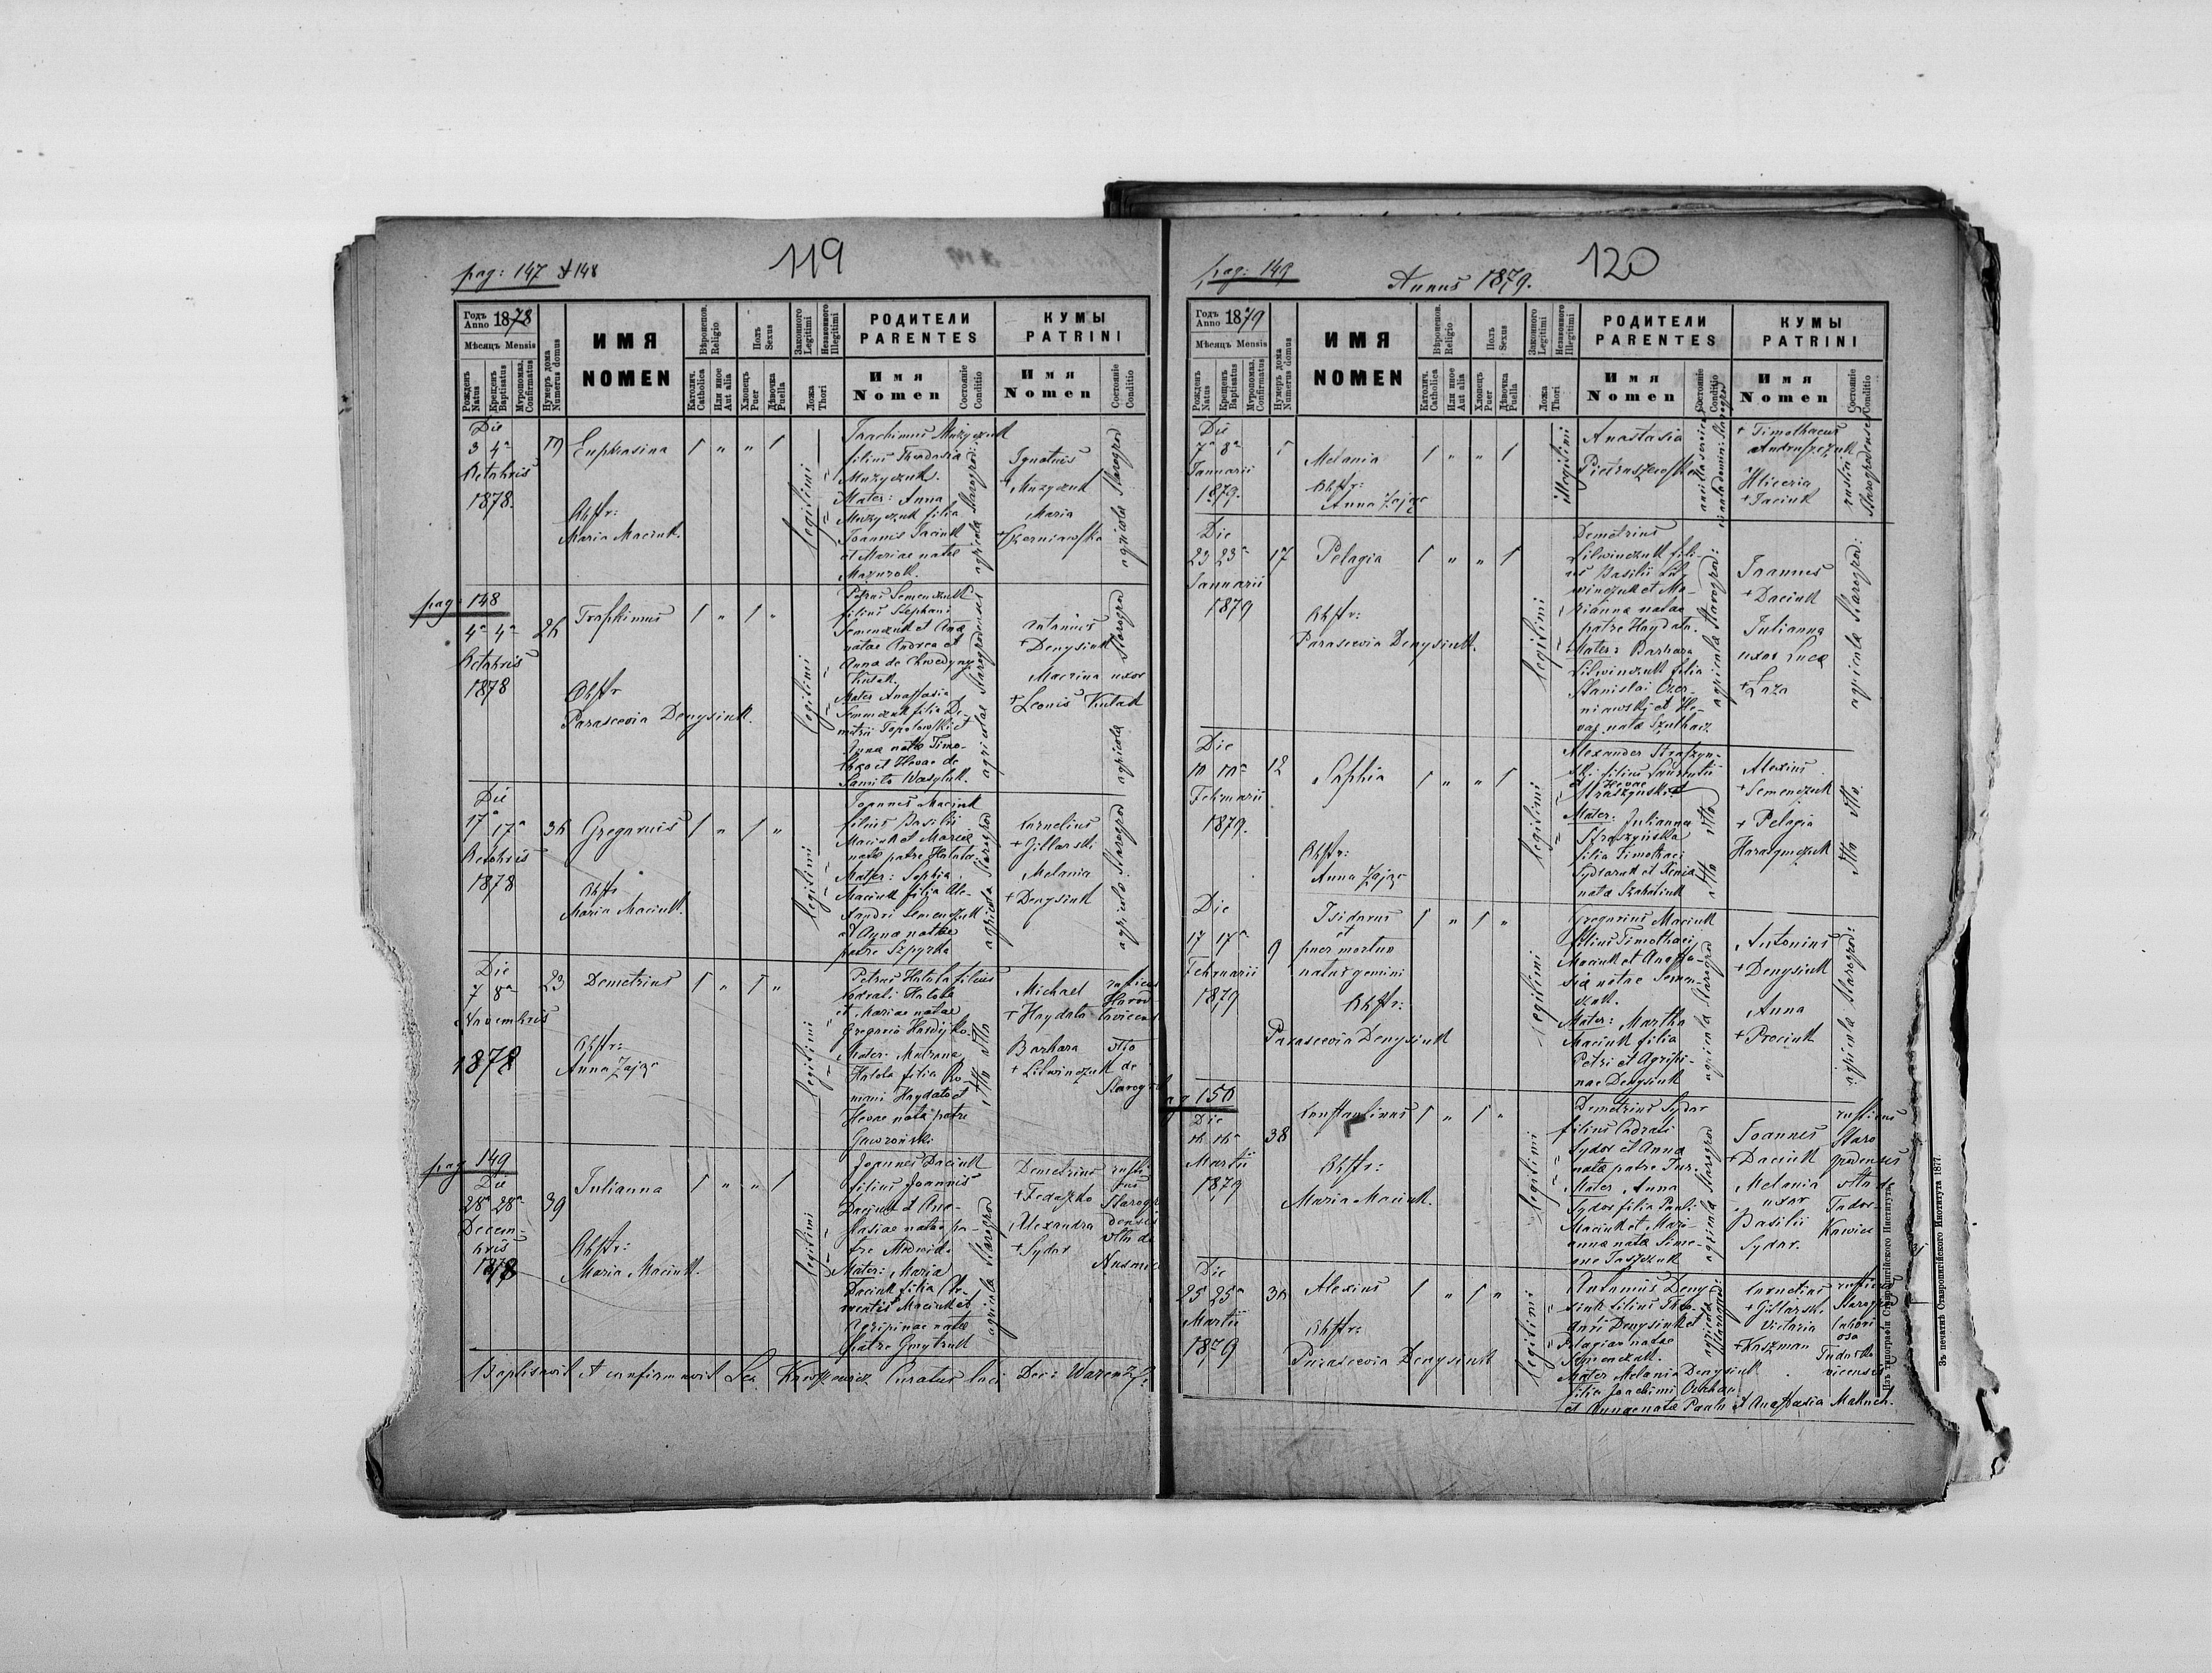 119
pag: 147 & 148
Годъ Anno 1878
Мѣсяцъ Mensis
Рожденъ Natus
Крещенъ Baptisatus
Мѵропомаз. Confirmatus
Нумеръ дома Numerus domus
ИМЯ
NOMEN
Вѣроисповѣд. Religio
Католич. Catholica
Или иное Aut alia
Полъ Sexus
Хлопецъ Puer
Дѣвочка Puella
Законного Legitimi
Незаконного Illegitimi
Ложа Thori
РОДИТЕЛИ
PARENTES
Имя
Nomen
Состояніе Conditio
КУМЫ
PATRINI
Имя
Nomen
Состояніе Conditio
Die
3 4a
Octobris
1878.
Euphrosina
Obstr:
Maria Maciuk.
legitimi
Joachimus Muzyczuk
filius Theodosia
Muzyczuk.
Mater: Anna
Muzyczuk filia
Joannis Daciuk
et Mariae natae
Mazurok.
agricola Starogrod:
Ignatius
+ Muzyczuk
Maria
+ Czerniawska
agricola Starogrod
pag 148
4a 4a
Octobris
1878
26
Trophimus
Obstr
Parascevia Denysiuk.
legitimi
Petrus Semenczuk
filius Stephani
Semenczuk et Anna
natae Andrea et
Anna de
Kutak.
Mater Anastasia
Semenczuk filia De-
metrii Topolowski et
Anna natae Timo-
et Hevae de
Wasyluk.
agricolae Starogrodensis
Antonius
+ Denysiuk
Macrina uxor
+ Leonis Kutak
agricola Starogrod
Die
17a 17a
Octobris
1878
36
Gregorius
Obstr
Maria Maciuk.
legitimi
Joannes Maciuk
filius Basilii
Maciuk et Mariae
natae patre Hatala.
Mater: Sophia
Maciuk filia Ale-
xandri Semenczuk
et Anna natae
patre Szpyrka
agricola Starogrod
Cornelius
+ Gillarski
Melania
+ Denysiuk
agricola Starogrod
Die
7 8a
Novembris
1878
23
Demetrius
Obstr:
Anna Zając
legitimi
Petrus Hatala filius
Codrati Hatala
et Mariae natae
Gregorio Hardyjko.
Mater. Matrona
Hatala filia Ro-
mani Haydata et
Hevae nata patre
Gawroński
dtto dtto
Michael
+ Haydata
Barbara
+ Litwinczuk
rusticus
dtto
de
Starogrod
pag 149
Die
28a 28a
Decem-
bris
1878
39
Julianna
Obstr:
Maria Maciuk.
legitimi
Joannes Daciuk
filius Joannis
Daciuk et Ana-
stasiae natae pa-
tre Medwid.
Mater: Maria
Daciuk filia Cle-
mentis Maciuk et
Agripinae natae
patre Gmytruk
agricola Starogrod
Demetrius
+ Fedaszko
Alexandra
+ Sydor
rusti-
cus
Starogro
densis
dtto de
Baptisavit et confirmavit Leo Curatus loci Dec:
120
pag: 149
Annus 1879.
Годъ Anno 1879
Мѣсяцъ Mensis
Рожденъ Natus
Крещенъ Baptisatus
Мѵропомаз. Confirmatus
Нумеръ дома Numerus domus
ИМЯ
NOMEN
Вѣроисповѣд. Religio
Католич. Catholica
Или иное Aut alia
Полъ Sexus
Хлопецъ Puer
Дѣвочка Puella
Законного Legitimi
Незаконного Illegitimi
Ложа Thori
РОДИТЕЛИ
PARENTES
Имя
Nomen
Состояніе Conditio
КУМЫ
PATRINI
Имя
Nomen
Состояніе Conditio
Die
7a 8a
Januarii
1879.
1
Melania
Obstr:
Anna Zając
illegitimi
Anastasia
Pietraszewska
+ Timothaeus
Andruszczuk
Hliceria
+ Daciuk
rustici
Starogrodenses
Die
23 23a
Januarii
1879
17
Pelagia
Obstr:
Parascevia Denysiuk.
legitimi
Demetrius
Litwinczuk fili-
us Basilii Lit-
winczuk et Ma-
rianna natae
patre Haydata.
Mater: Barbara
Litwinczuk filia
Stanislai Czer-
niawski et He-
vae nata
agricola Starogrod:
Joannes
+ Daciuk
Julianna
uxor Lucae
+ Laza
agricola Starogrod:
Die
10 10a
Februarii
1879.
12
Sophia
Obstr:
Anna Zając
legitimi
Alexander Straszyn-
ski filius Laurentii
et Hevae
Straszynski
Mater: Julianna
Straszyńska
filia Timothaei
Sydoruk et Xenia
nata
dtto dtto
Alexius
+ Semenczuk
+ Pelagia
Harasymczuk
dtto dtto
Die
17 17a
Februarii
1879
9
Isidorus
et
puer mortuo
natus gemini
Obstr:
Parascevia Denysiuk
legitimi
Gregorius Maciuk
filius Timothaei
Maciuk et Anasta-
sia natae Semen-
czuk.
Mater: Martha
Maciuk filia
Petri et Agripi-
nae Denysiuk
agricola Starogrod
Antonius
+ Denysiuk
Anna
+ Prociuk
agricola Starogrod:
150
Die
16 16a
Martii
1879
38
Constantinus
Obstr:
Maria Maciuk.
legitimi
Demetrius Sydor
filius Codrati
Sydor et Anna
nata patre Jur.
Mater Anna
Sydor filia Pauli
Maciuk et Mari-
anna nata Sime-
one Jaszczuk
agricola Starogrod
Joannes
+ Daciuk
Melania
uxor
Basilii
Sydor.
rusticus
Staro
grodensis
dtto de
Tudor
kowice
Die
25 25a
Martii
1879
30
Alexius
Obstr:
Parascevia Denysiuk
legitimi
Antonius Deny
siuk filius Theo-
dori Denysiuk et
Pelagiae natae
Semenczuk.
Mater Melania Denysiuk
filia Joachimi
et Annae nata Paulo et Anastasia
agricola
Starogrod:
Cornelius
+ Gillarski
Victoria
+ Kaszman
rusticus
Starogrod
labori
osa
Tudorko
vicensis
Изъ типографіи Ставропигійского Института.
Зъ печатнѣ Ставропигійского Института 1877.